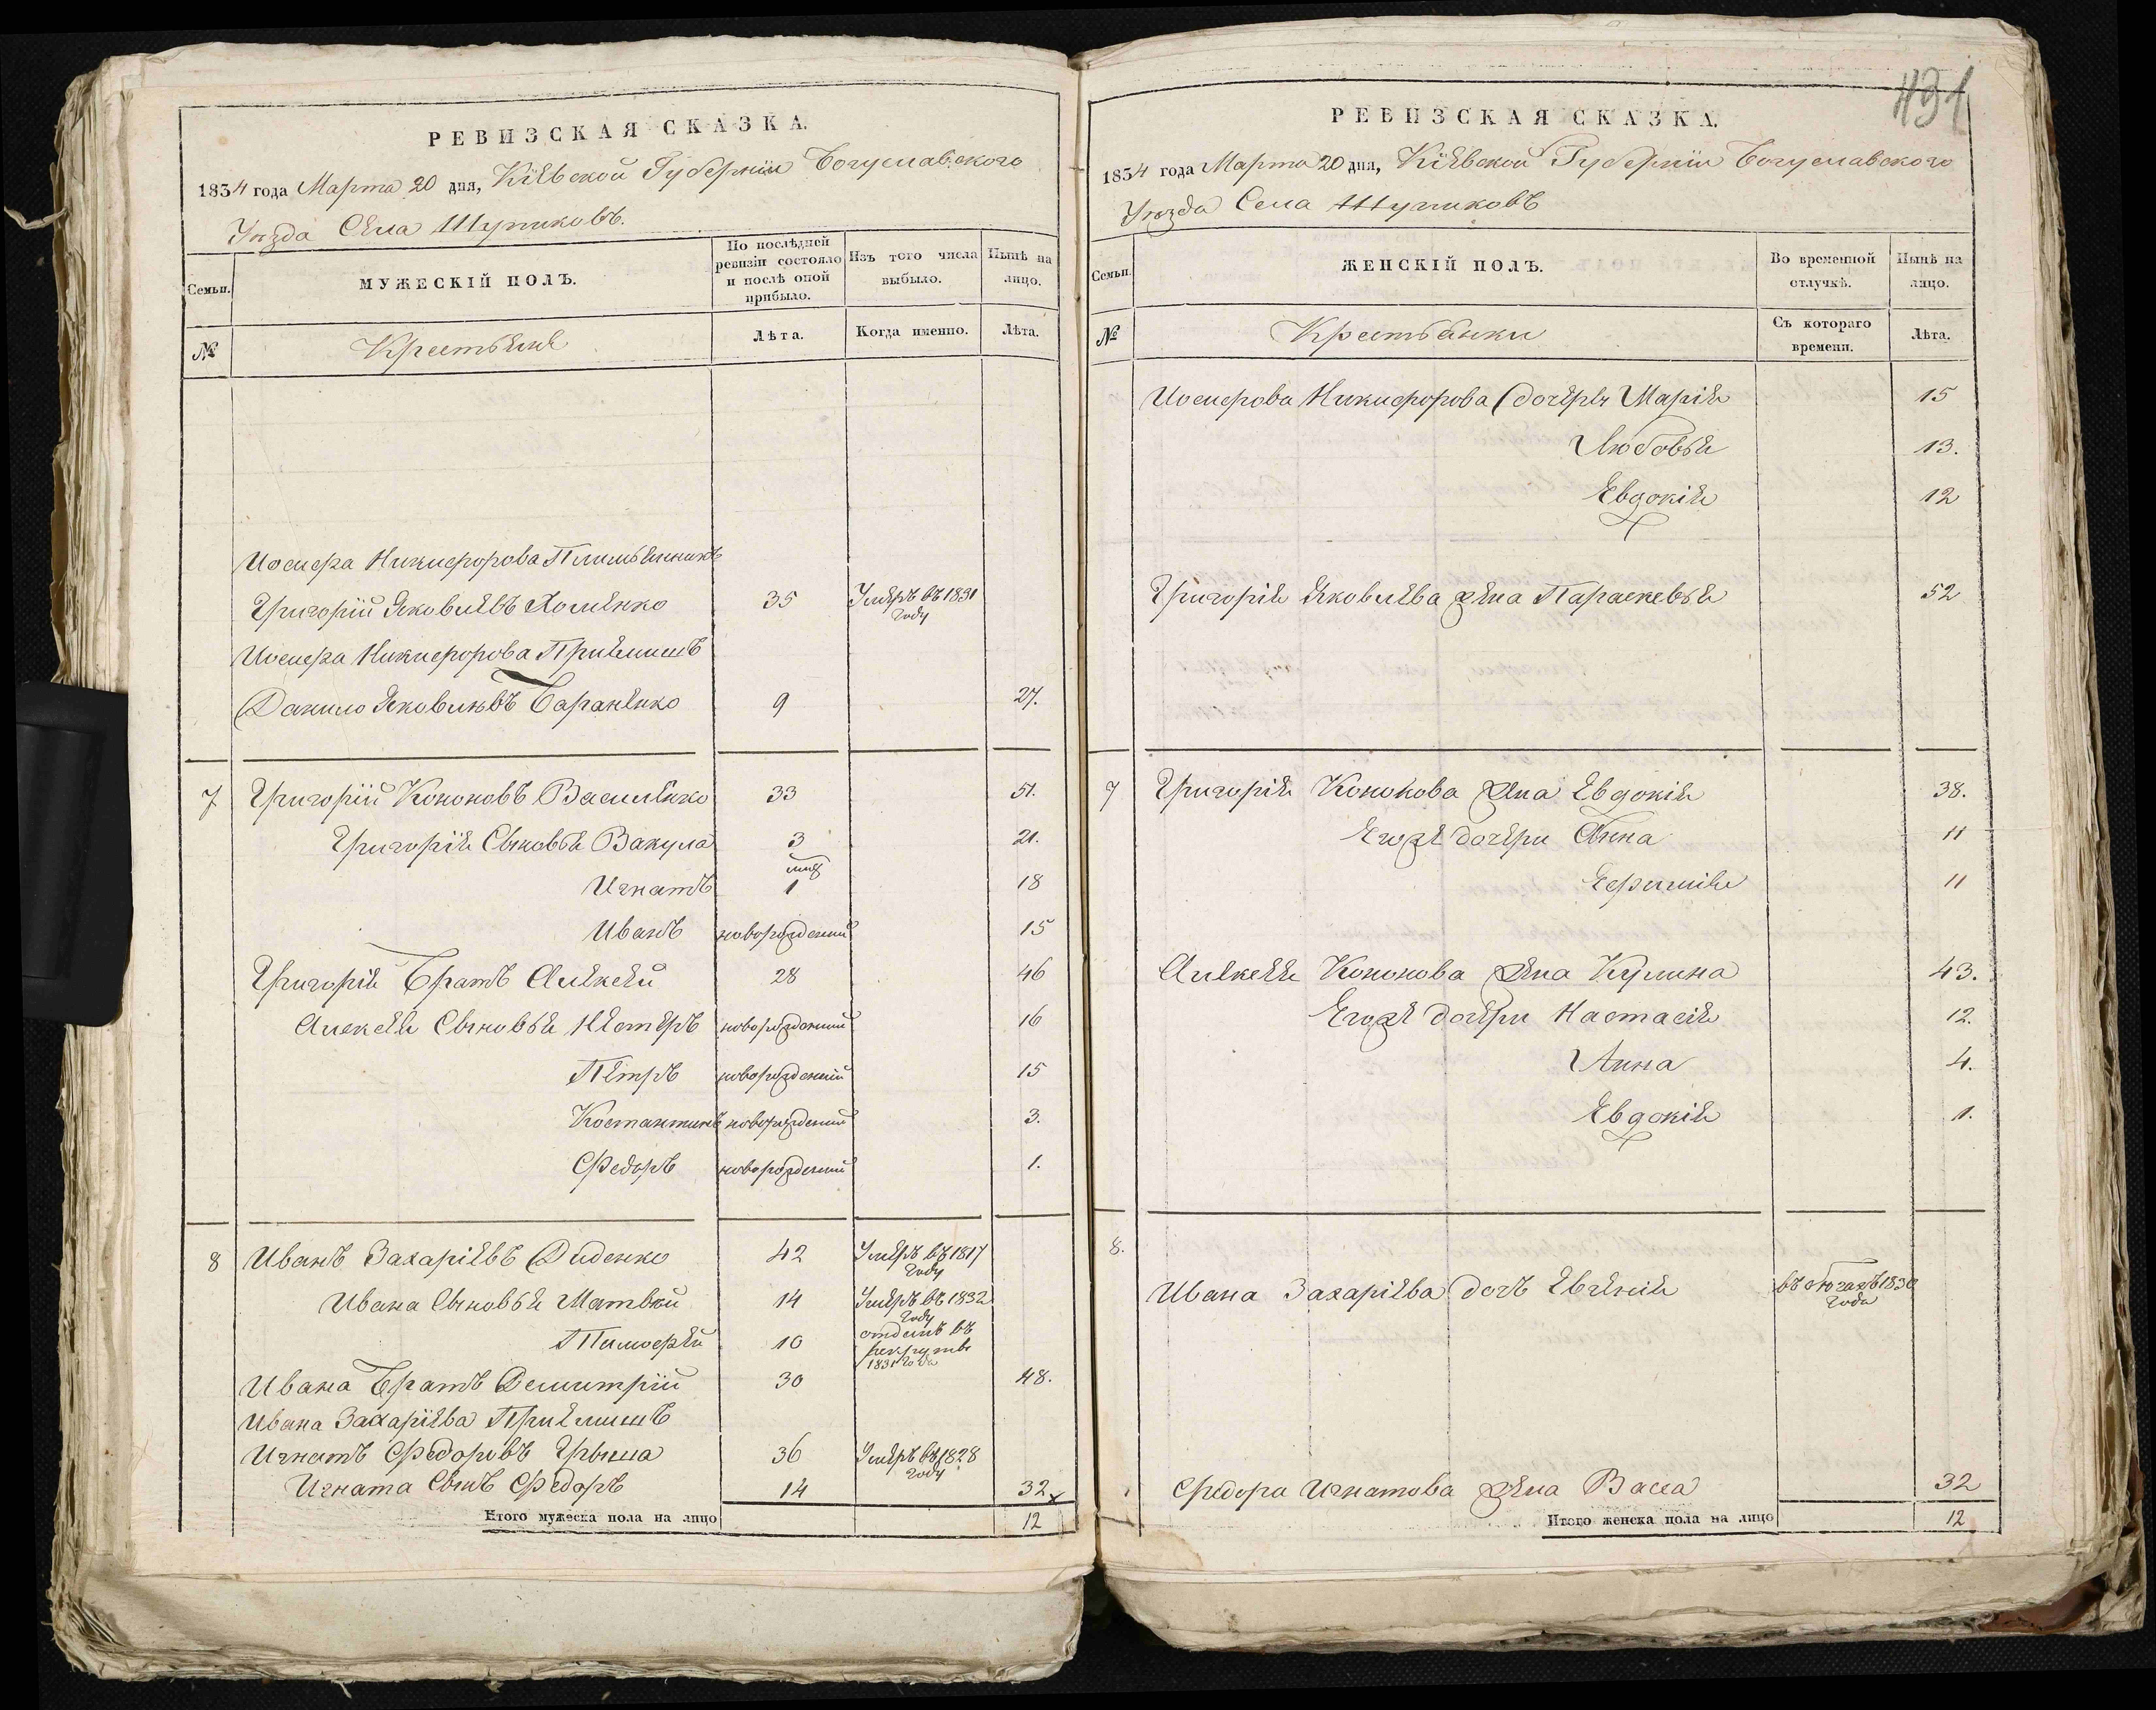 РЕВИЗСКАЯ СКАЗКА.
1834 года Марта 20 дня, Кіевской Губерніи Богуславского
Уѣзда Села Шупиковъ.
Семьи.
МУЖЕСКІЙ ПОЛЪ.
По послѣдней ревизіи состояло и послѣ оной прибыло.
Изъ того числа выбыло.
Нынѣ на лицо.
№
Крестьяне
Лѣта.
Когда именно.
Лѣта.
Иосифа Никифорова Племьянникъ
Григорій Яковлевъ Хоменко 35 Умеръ въ 1831 году
Иосифа Никифорова Приемышъ
Данило Яковлевъ Бараненко 9 27.
7 Григорій Кононовъ Василенко 33 51.
Григорія Сыновья Вакула 3 21.
Игнатъ 1 18
Иванъ новорожденый 15
Григорія Братъ Алексей 28 46
Алексея Сыновья Нестеръ новорожденый 16
Петръ новорожденый 15
Костантинъ новорожденый 3.
Федоръ новорожденый 1.
8 Иванъ Захаріевъ Диденко 42 Умеръ въ 1817 году
Ивана Сыновья Матвей 14 Умеръ въ 1832 году
Тимофей 10 отданъ въ рекруты 1831 года
Ивана Братъ Демитрій 30 48.
Ивана Захаріева Приемышъ
Игнатъ Федоровъ 36 Умеръ въ 1828 году
Игната Сынъ Федоръ 14 32
Итого мужеска пола на лицо 12
491
РЕВИЗСКАЯ СКАЗКА.
1834 года Марта 20 дня, Кіевской Губерніи Богуславского
Уѣзда Села Шупиковъ
Семьи.
ЖЕНСКІЙ ПОЛЪ.
Во временной отлучкѣ.
Нынѣ на лицо.
№
Крестьянки
Съ котораго времени.
Лѣта.
Иосифова Никифорова дочеря Марія 15
Любовья 13.
Евдокія 12
Григорія Яковлева жена Параскевья 52
7 Григорія Кононова жена Евдокія 38.
Егоже дочери Анна 11
Ефимія 11
Алексея Кононова жена Кулина 43.
Егоже дочери Настасія 12.
Анна 4.
Евдокія 1.
8.
Ивана Захаріева дочъ Евгенія въ бегахъ 1830 года
Федора Игнатова жена Васса 32
Итого женска пола на лицо 12